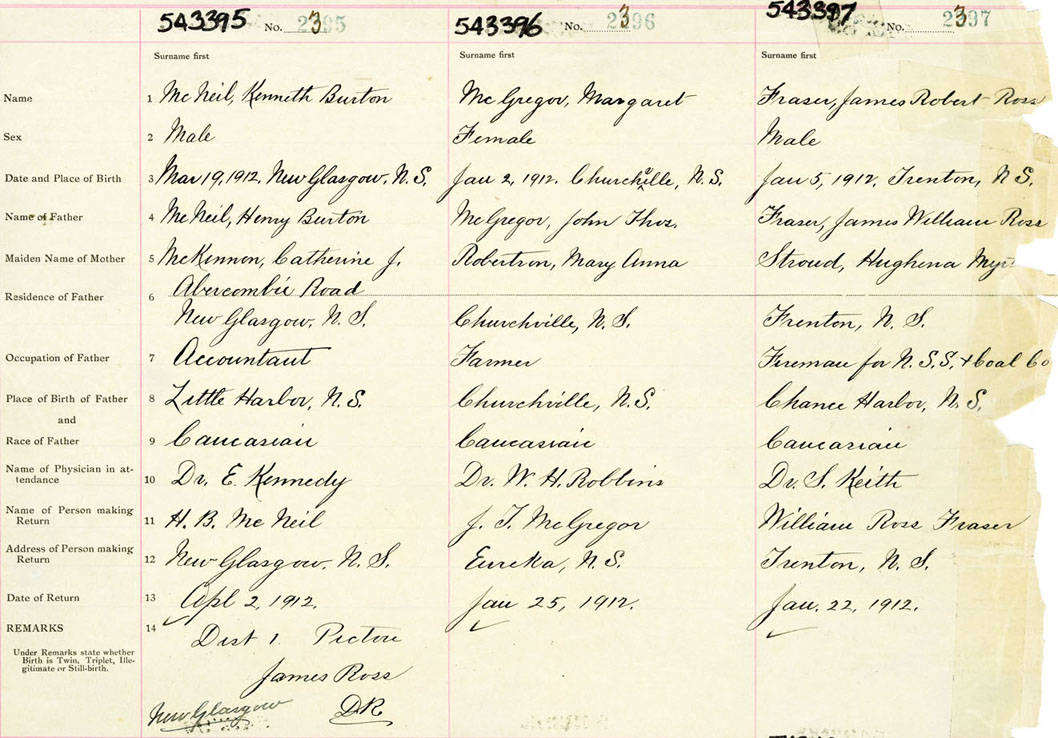 543395 No. 2395 543396 No. 2396 543397 No. 2397
Surname first Surname first Surname first
Name 1 McNeil, Kenneth Burton McGregor, Margaret Fraser, James Robert Ross
Sex 2 Male Female Male
Date and Place of Birth 3 Mar 19, 1912, New Glasgow, N.S. Jan 2, 1912. Churchville, N.S. Jan 5, 1912, Trenton, N.S.
Name of Father 4 McNeil, Henry Burton McGregor, John Thos. Fraser, James William Ross
Maiden Name of Mother 5 McKinnon, Catherine J. Robertson, Mary Anna Stroud, Hughena
Abercombie Road
Residence of Father 6
New Glasgow, N.S. Churchville, N.S. Trenton, N.S.
Occupation of Father 7 Accountant Farmer Fireman for N.S.S. & Coal Co
Place of Birth of Father 8 Little Harbor, N.S. Churchville, N.S. Chance Harbor, N.S.
and
Race of Father 9 Caucasian Caucasian Caucasian
Name of Physician in at-
tendance 10 Dr. E. Kennedy Dr. W. H. Robbins Dr. S. Keith
Name of Person making
Return 11 H. B. McNeil J. T. McGregor William Ross Fraser
Address of Person making
Return 12 New Glasgow, N.S. Eureka, N.S. Trenton, N.S.
Date of Return 13 Apl 2, 1912. Jan 25, 1912. Jan. 22, 1912.
REMARKS 14 Dist 1. Pictou
Under Remarks state whether
Birth is Twin, Triplet, Ille-
gitimate or Still-birth.
James Ross
New Glasgow DR